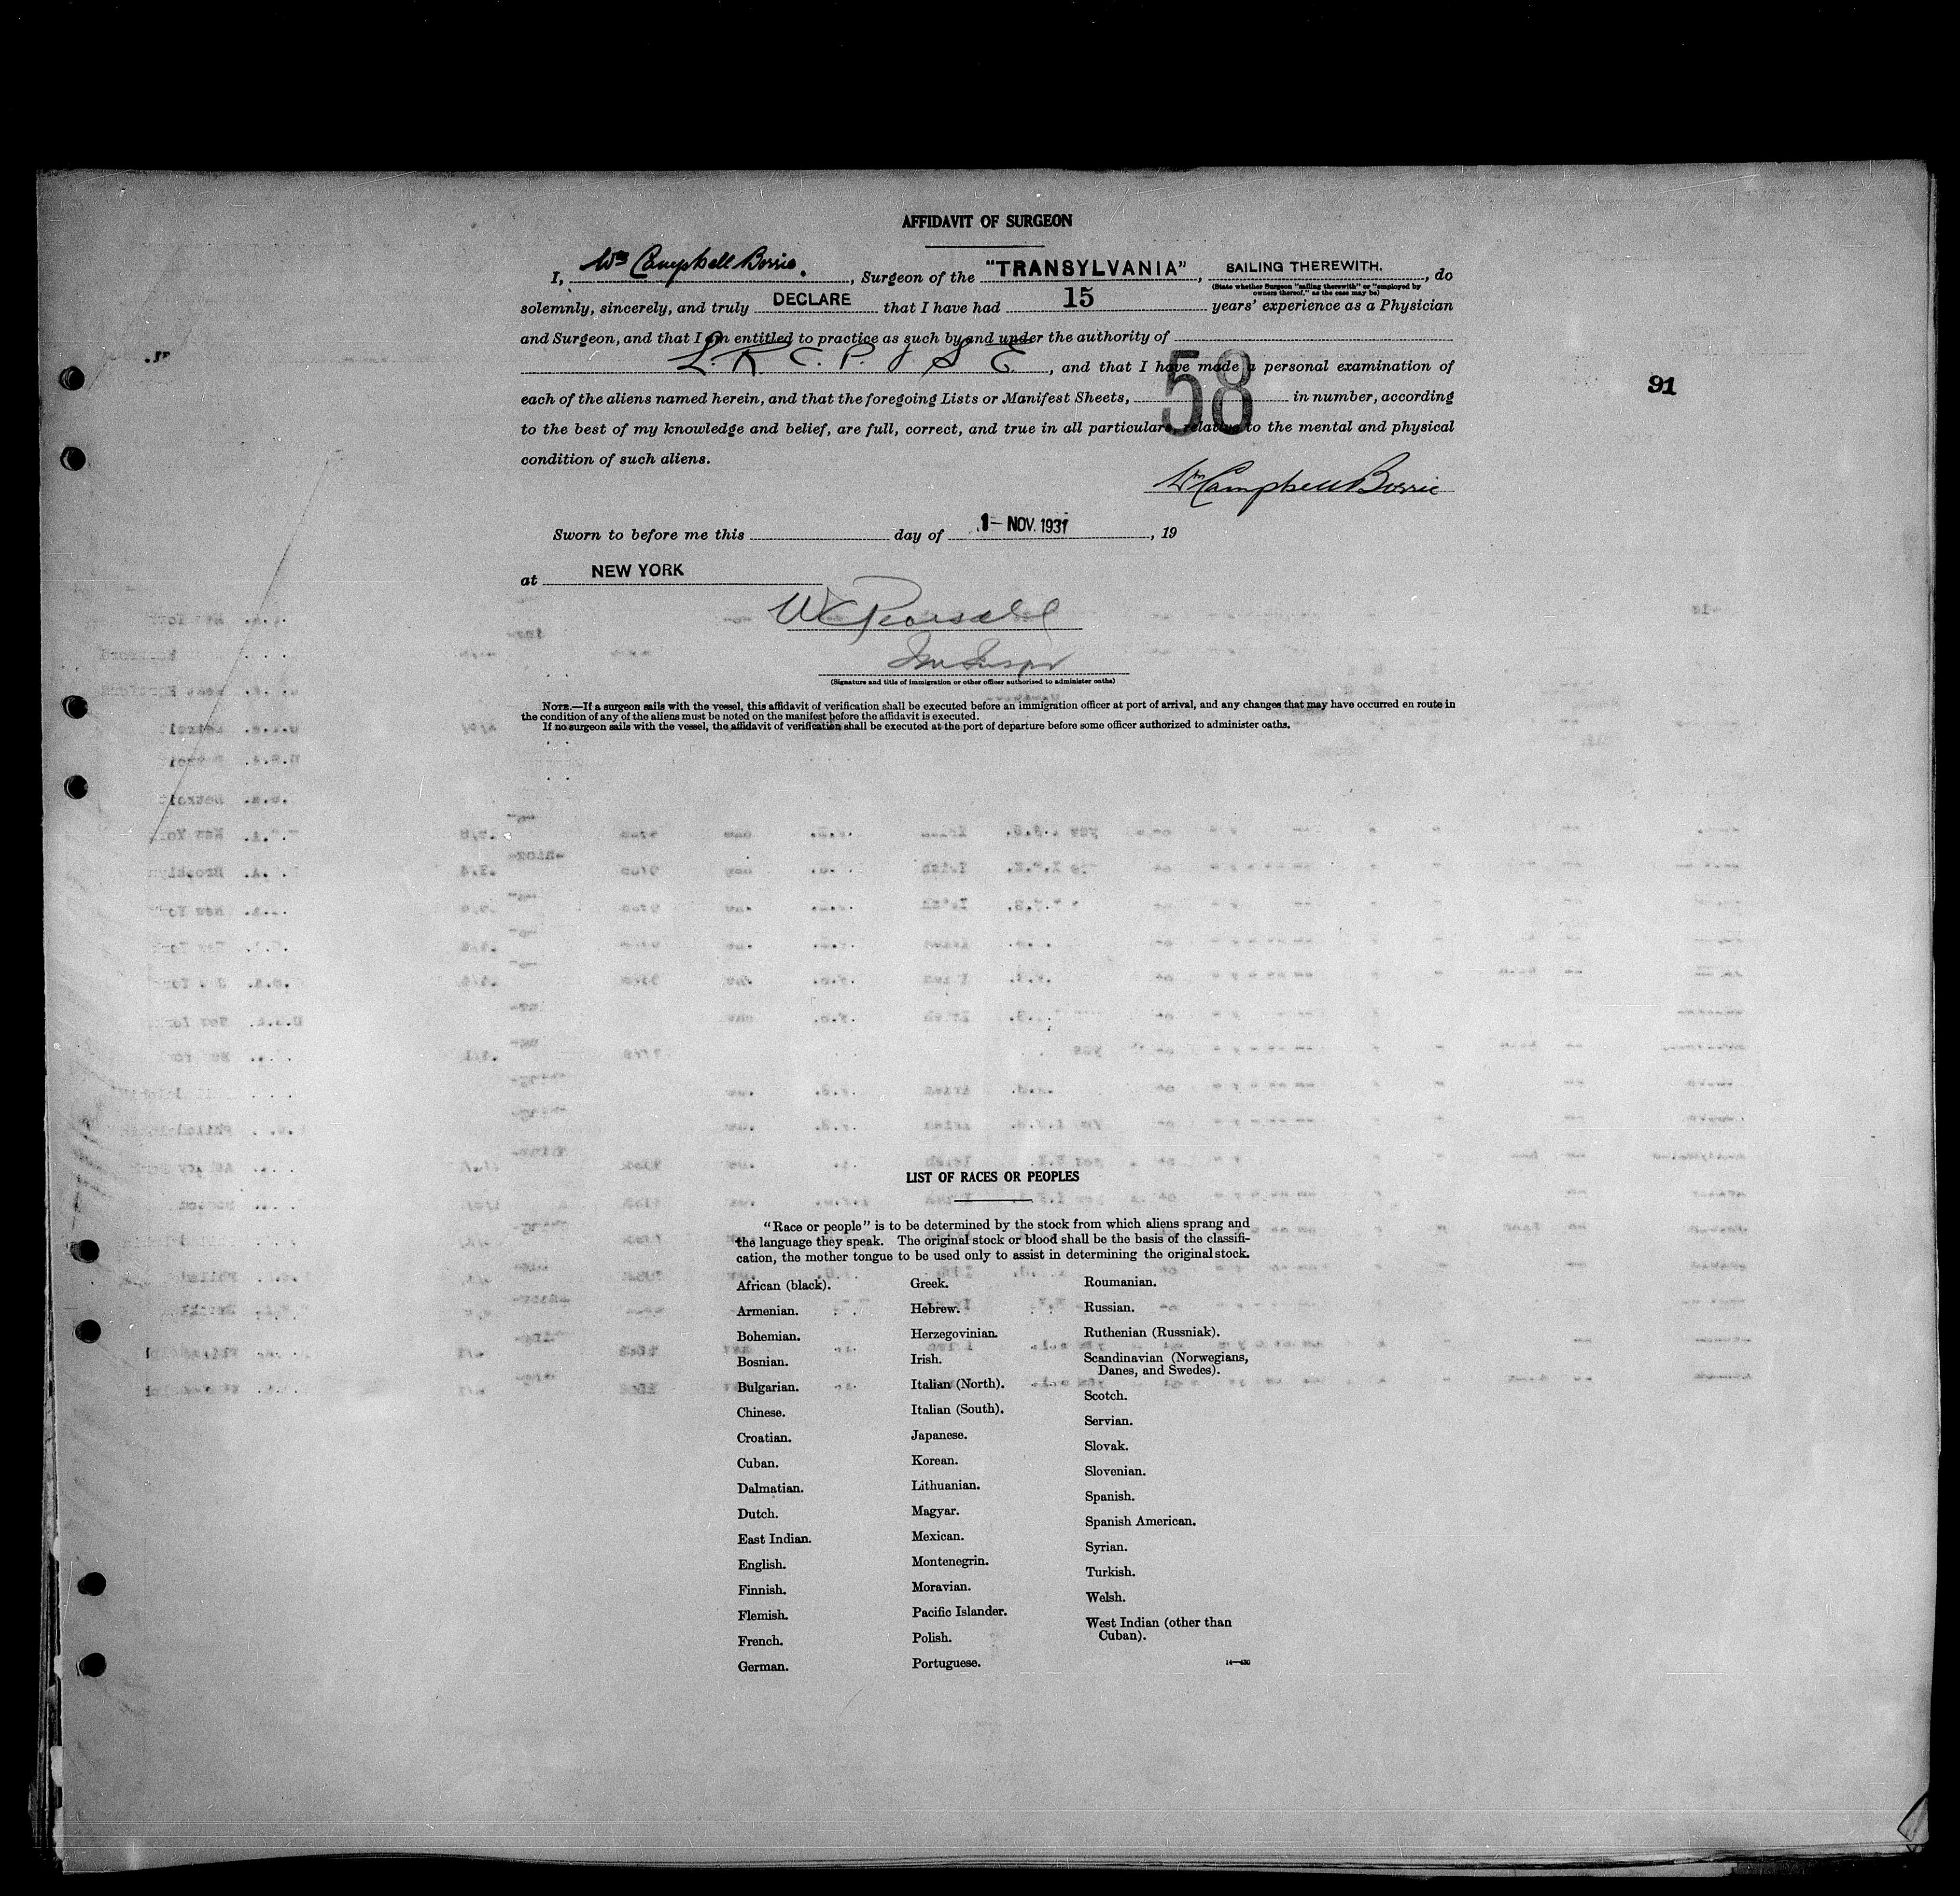 AFFIDAVIT OF SURGEON
I, Wm Campbell Borrie., Surgeon of the "TRANSYLVANIA", SAILING THEREWITH., do
(State whether Surgeon "sailing therewith" or "employed by
owners thereof," as the case may be)
solemnly, sincerely, and truly DECLARE that I have had 15 years' experience as a Physician
and Surgeon, and that I am entitled to practice as such by and under the authority of
L. R. C. P. & S E., and that I have made a personal examination of
91
each of the aliens named herein, and that the foregoing Lists or Manifest Sheets, 58 in number, according
to the best of my knowledge and belief, are full, correct, and true in all particulars relative to the mental and physical
condition of such aliens.
Wm Campbell Borrie
Sworn to before me this day of 1- NOV. 1931, 19
at NEW YORK
W C Pearsall
Imm Inspr
(Signature and title of immigration or other officer authorized to administer oaths)
NOTE.—If a surgeon sails with the vessel, this affidavit of verification shall be executed before an immigration officer at port of arrival, and any changes that may have occurred en route in
the condition of any of the aliens must be noted on the manifest before the affidavit is executed.
If no surgeon sails with the vessel, the affidavit of verification shall be executed at the port of departure before some officer authorized to administer oaths.
LIST OF RACES OR PEOPLES
"Race or people" is to be determined by the stock from which aliens sprang and
the language they speak. The original stock or blood shall be the basis of the classifi-
cation, the mother tongue to be used only to assist in determining the original stock.
African (black).
Armenian.
Bohemian.
Bosnian.
Bulgarian.
Chinese.
Croatian.
Cuban.
Dalmatian.
Dutch.
East Indian.
English.
Finnish.
Flemish.
French.
German.
Greek.
Hebrew.
Herzegovinian.
Irish.
Italian (North).
Italian (South).
Japanese.
Korean.
Lithuanian.
Magyar.
Mexican.
Montenegrin.
Moravian.
Pacific Islander.
Polish.
Portuguese.
Roumanian.
Russian.
Ruthenian (Russniak).
Scandinavian (Norwegians,
Danes, and Swedes).
Scotch.
Servian.
Slovak.
Slovenian.
Spanish.
Spanish American.
Syrian.
Turkish.
Welsh.
West Indian (other than
Cuban).
14—430